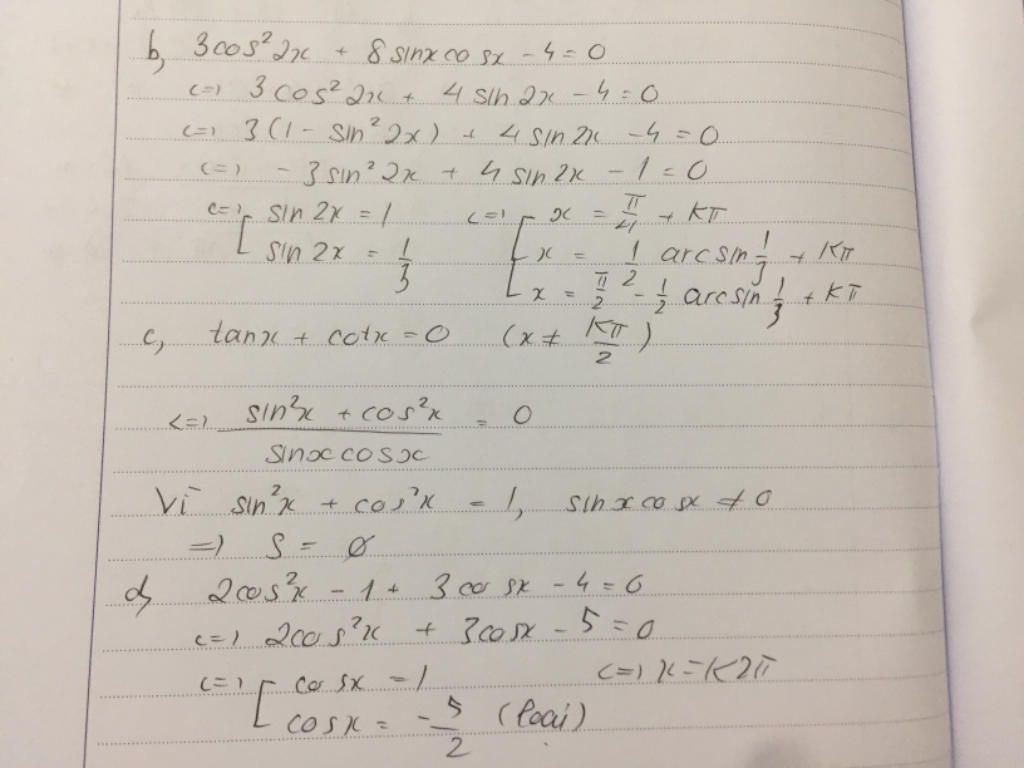 b, 3cos²2x + 8sinxcosx - 4 = 0
<=> 3cos²2x + 4sin2x - 4 = 0
<=> 3(1 - sin²2x) + 4sin2x - 4 = 0
<=> -3sin²2x + 4sin2x - 1 = 0
<=> [ sin2x = 1 <=> [ x = π/4 + kπ
sin2x = 1/3 x = 1/2 arcsin 1/3 + kπ
x = π/2 - 1/2 arcsin 1/3 + kπ
c, tanx + cotx = 0 (x ≠ kπ/2)
<=> (sin²x + cos²x)/(sinxcosx) = 0
Vì sin²x + cos²x = 1, sinxcosx ≠ 0
=> S = ∅
d, 2cos²x - 1 + 3cosx - 4 = 0
<=> 2cos²x + 3cosx - 5 = 0
<=> [ cosx = 1 <=> x = k2π
cosx = -5/2 (loại)